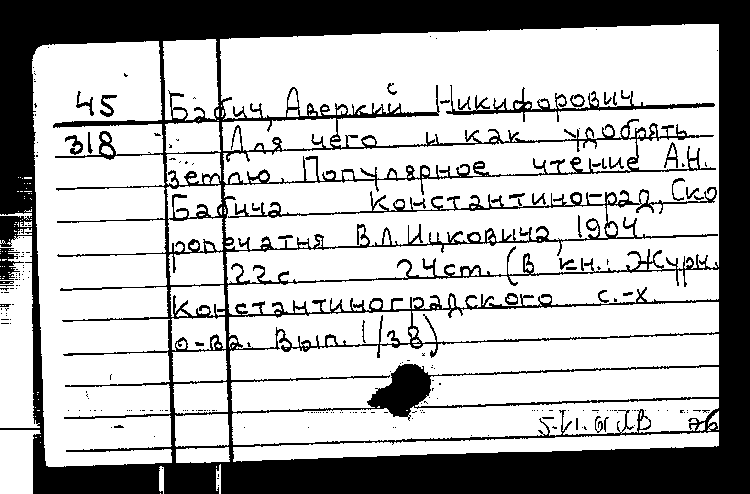 45 Бабич, Аверкий Никифорович.
318 Для чего и как удобрять
землю. Популярное чтение А.Н.
Бабича. Константиноград, Ско
ропечатня В.Л. Ицковича, 1904.
22с. 24ст. (В кн.: Журн.
Константиноградского с.-х.
о-ва. Вып. 1/38)